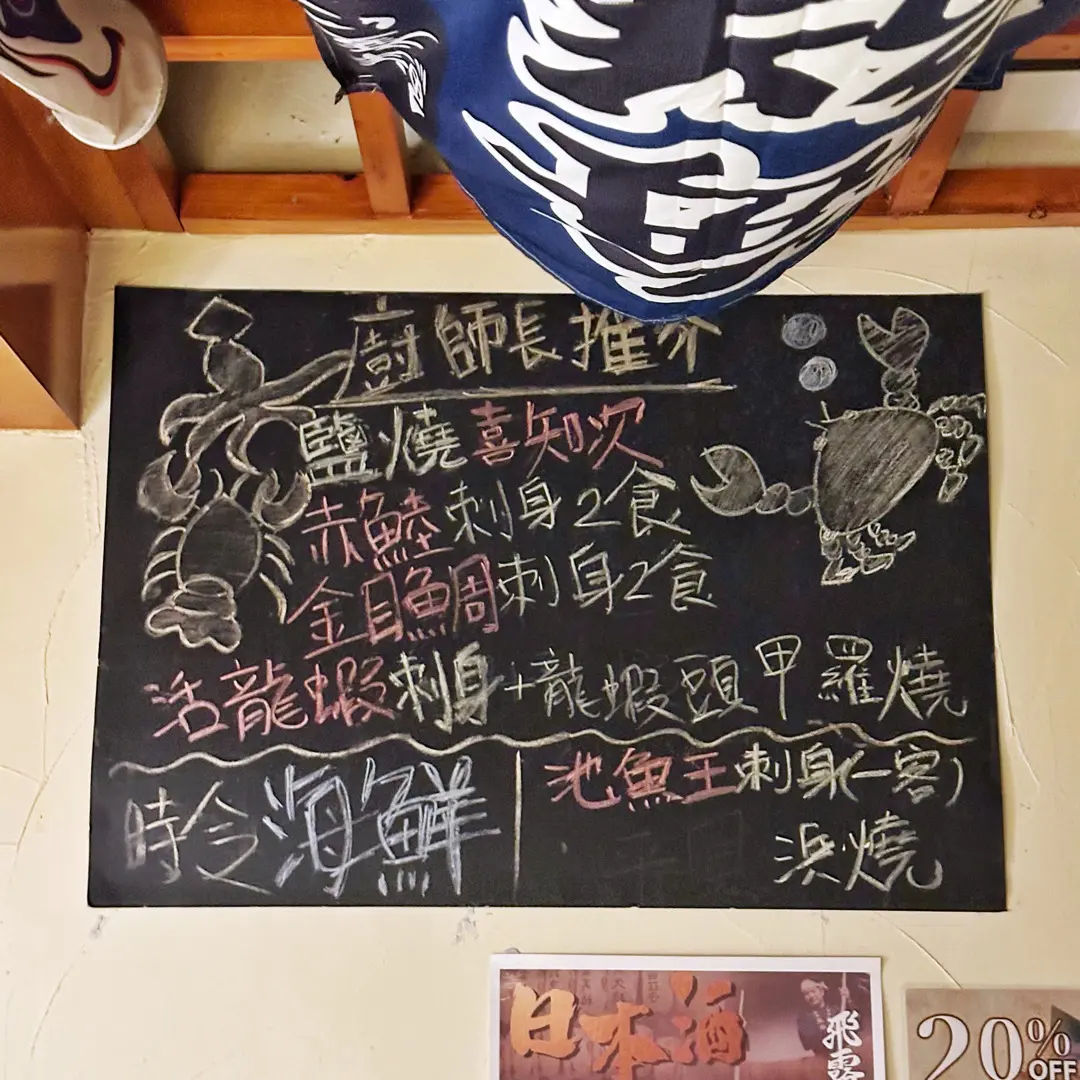 廚師長推介
鹽燒喜知次
赤鯥刺身2食
金目鯛刺身2食
活龍蝦刺身+龍蝦頭甲羅燒
時令海鮮
池魚王刺身(一客)
浜燒
日本酒
飛露
20% OFF